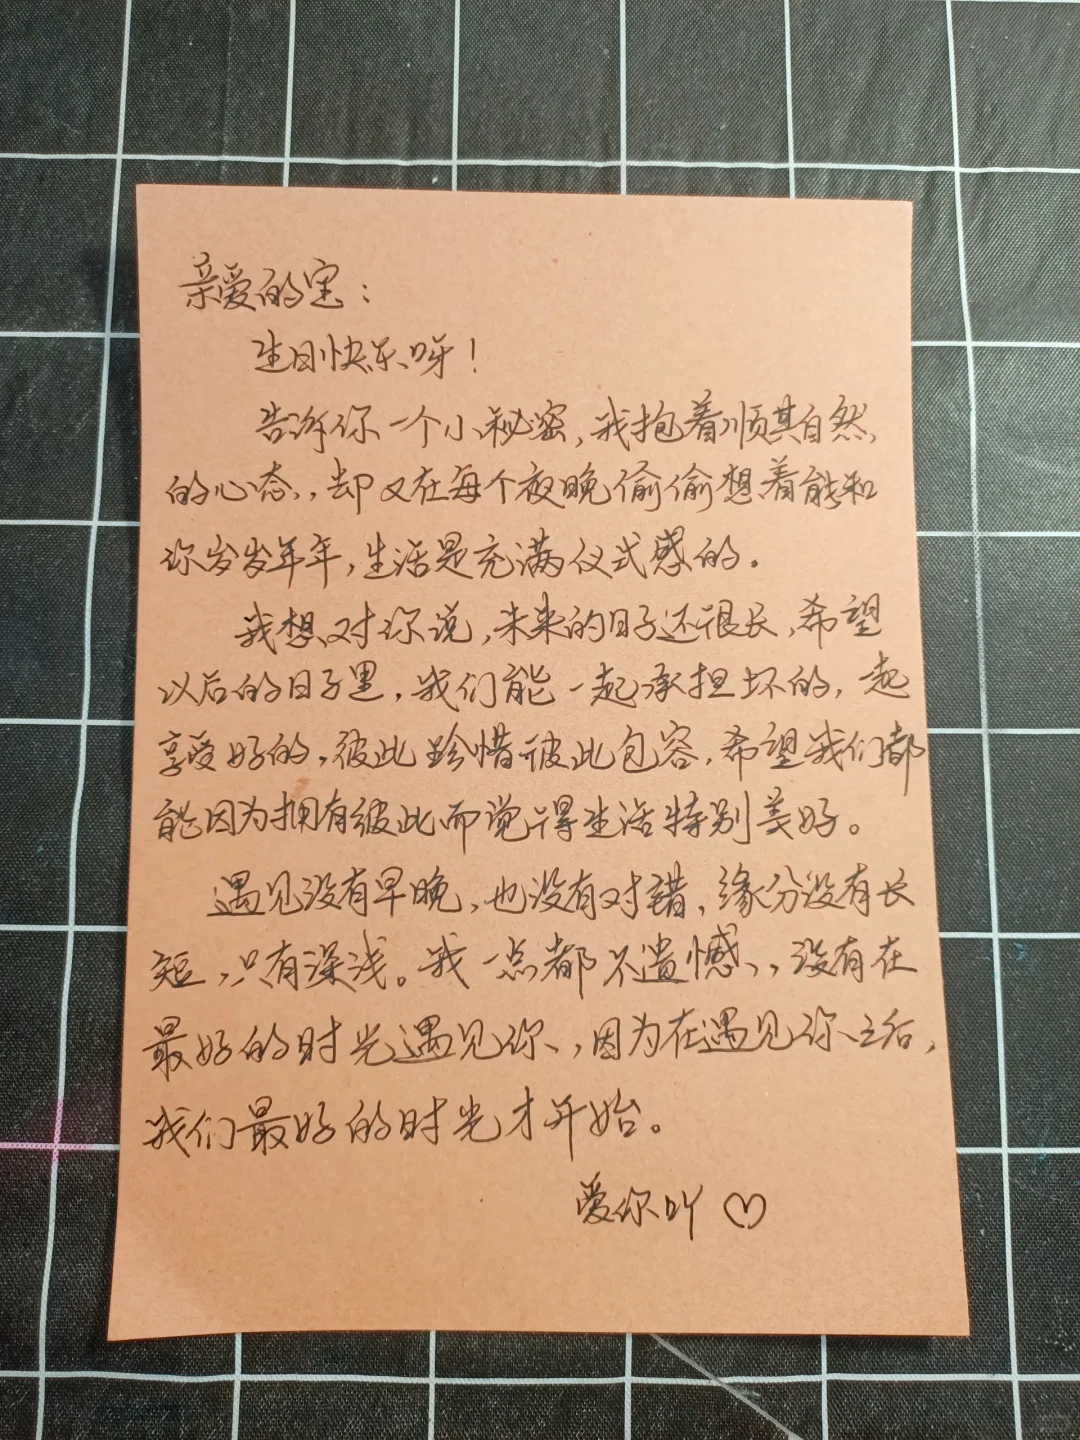 亲爱的宝：
生日快乐呀！
告诉你一个小秘密，我抱着顺其自然
的心态，却又在每个夜晚偷偷想着能和
你岁岁年年，生活是充满仪式感的。
我想对你说，未来的日子还很长，希望
以后的日子里，我们能一起承担坏的，一起
享受好的，彼此珍惜彼此包容，希望我们都
能因为拥有彼此而觉得生活特别美好。
遇见没有早晚，也没有对错，缘分没有长
短，只有深浅。我一点都不遗憾，没有在
最好的时光遇见你，因为在遇见你之后，
我们最好的时光才开始。
爱你吖♡